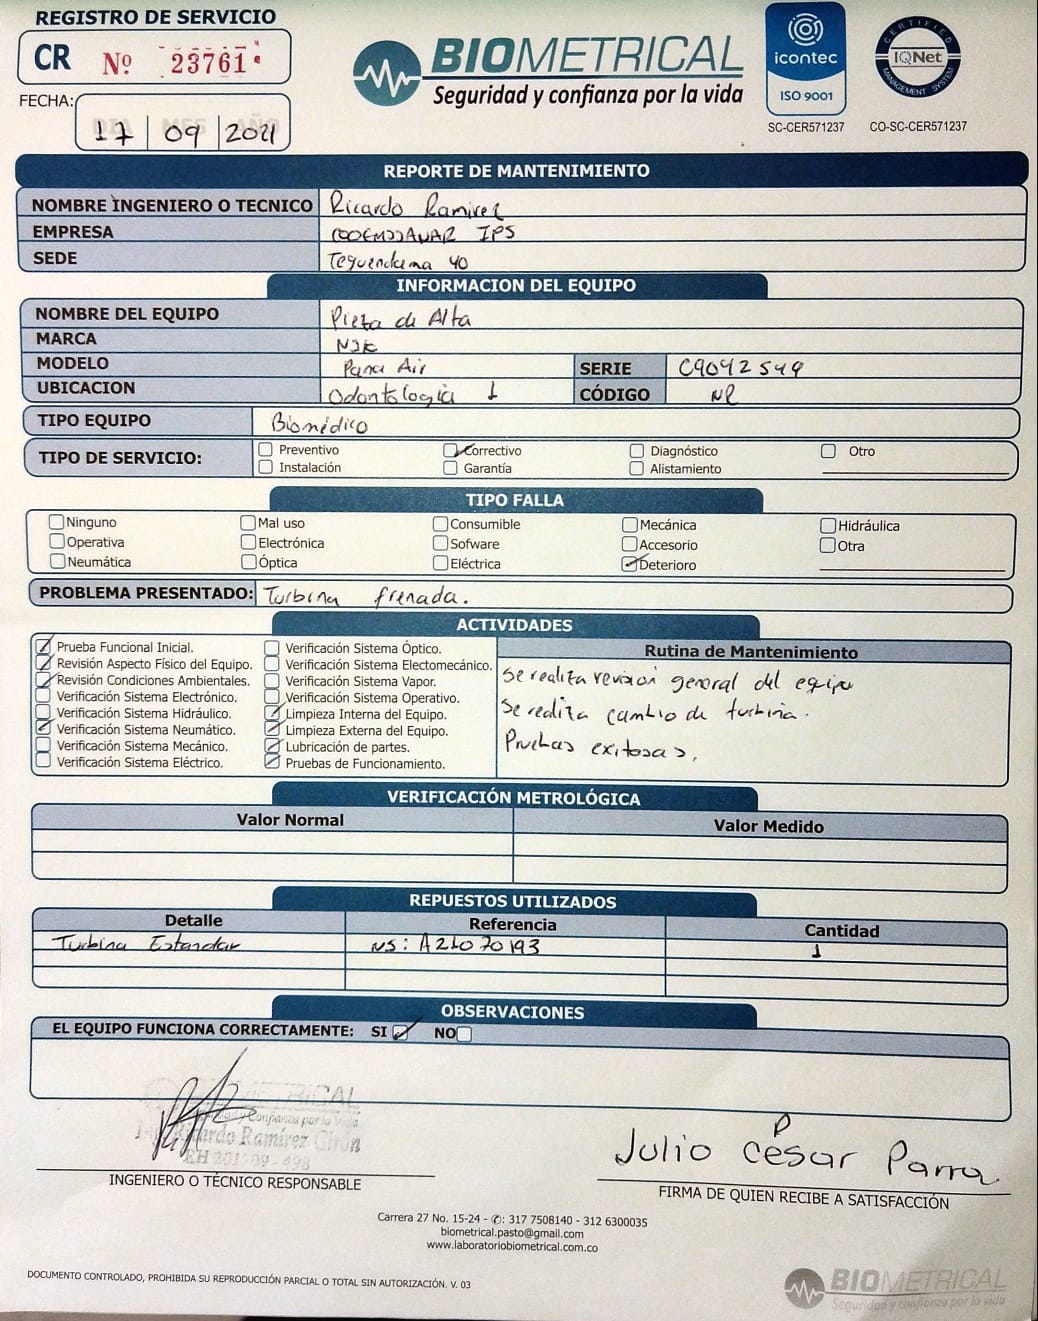 REGISTRO DE SERVICIO
CR Nº 23761
BIOMETRICAL
Seguridad y confianza por la vida
icontec
ISO 9001
SC-CER571237
CERTIFIED
IQNet
MANAGEMENT SYSTEM
CO-SC-CER571237
FECHA: DIA MES AÑO
17 09 2021
REPORTE DE MANTENIMIENTO
NOMBRE INGENIERO O TECNICO Ricardo Ramirez
EMPRESA COOEMSSANAR IPS
SEDE Tequendama 40
INFORMACION DEL EQUIPO
NOMBRE DEL EQUIPO Pieza de Alta
MARCA NSK
MODELO Pana Air SERIE C9042544
UBICACION Odontologia 1 CÓDIGO NR
TIPO EQUIPO Biomédico
TIPO DE SERVICIO: Preventivo Correctivo Diagnóstico Otro
Instalación Garantía Alistamiento
TIPO FALLA
Ninguno Mal uso Consumible Mecánica Hidráulica
Operativa Electrónica Sofware Accesorio Otra
Neumática Óptica Eléctrica Deterioro
PROBLEMA PRESENTADO: Turbina frenada.
ACTIVIDADES
Prueba Funcional Inicial.
Revisión Aspecto Físico del Equipo.
Revisión Condiciones Ambientales.
Verificación Sistema Electrónico.
Verificación Sistema Hidráulico.
Verificación Sistema Neumático.
Verificación Sistema Mecánico.
Verificación Sistema Eléctrico.
Verificación Sistema Óptico.
Verificación Sistema Electomecánico.
Verificación Sistema Vapor.
Verificación Sistema Operativo.
Limpieza Interna del Equipo.
Limpieza Externa del Equipo.
Lubricación de partes.
Pruebas de Funcionamiento.
Rutina de Mantenimiento
Se realiza revision general del equipo
Se realiza cambio de turbina.
Pruebas exitosas.
VERIFICACIÓN METROLÓGICA
Valor Normal Valor Medido
REPUESTOS UTILIZADOS
Detalle Referencia Cantidad
Turbina Estandar NS: A21070193 1
OBSERVACIONES
EL EQUIPO FUNCIONA CORRECTAMENTE: SI NO
BIOMETRICAL
Seguridad y Confianza por la Vida
Ing. Ricardo Ramírez Girón
INGENIERO O TÉCNICO RESPONSABLE
Julio César Parra
FIRMA DE QUIEN RECIBE A SATISFACCIÓN
Carrera 27 No. 15-24 - ✆: 317 7508140 - 312 6300035
biometrical.pasto@gmail.com
www.laboratoriobiometrical.com.co
DOCUMENTO CONTROLADO, PROHIBIDA SU REPRODUCCIÓN PARCIAL O TOTAL SIN AUTORIZACIÓN. V. 03
BIOMETRICAL
Seguridad y confianza por la vida